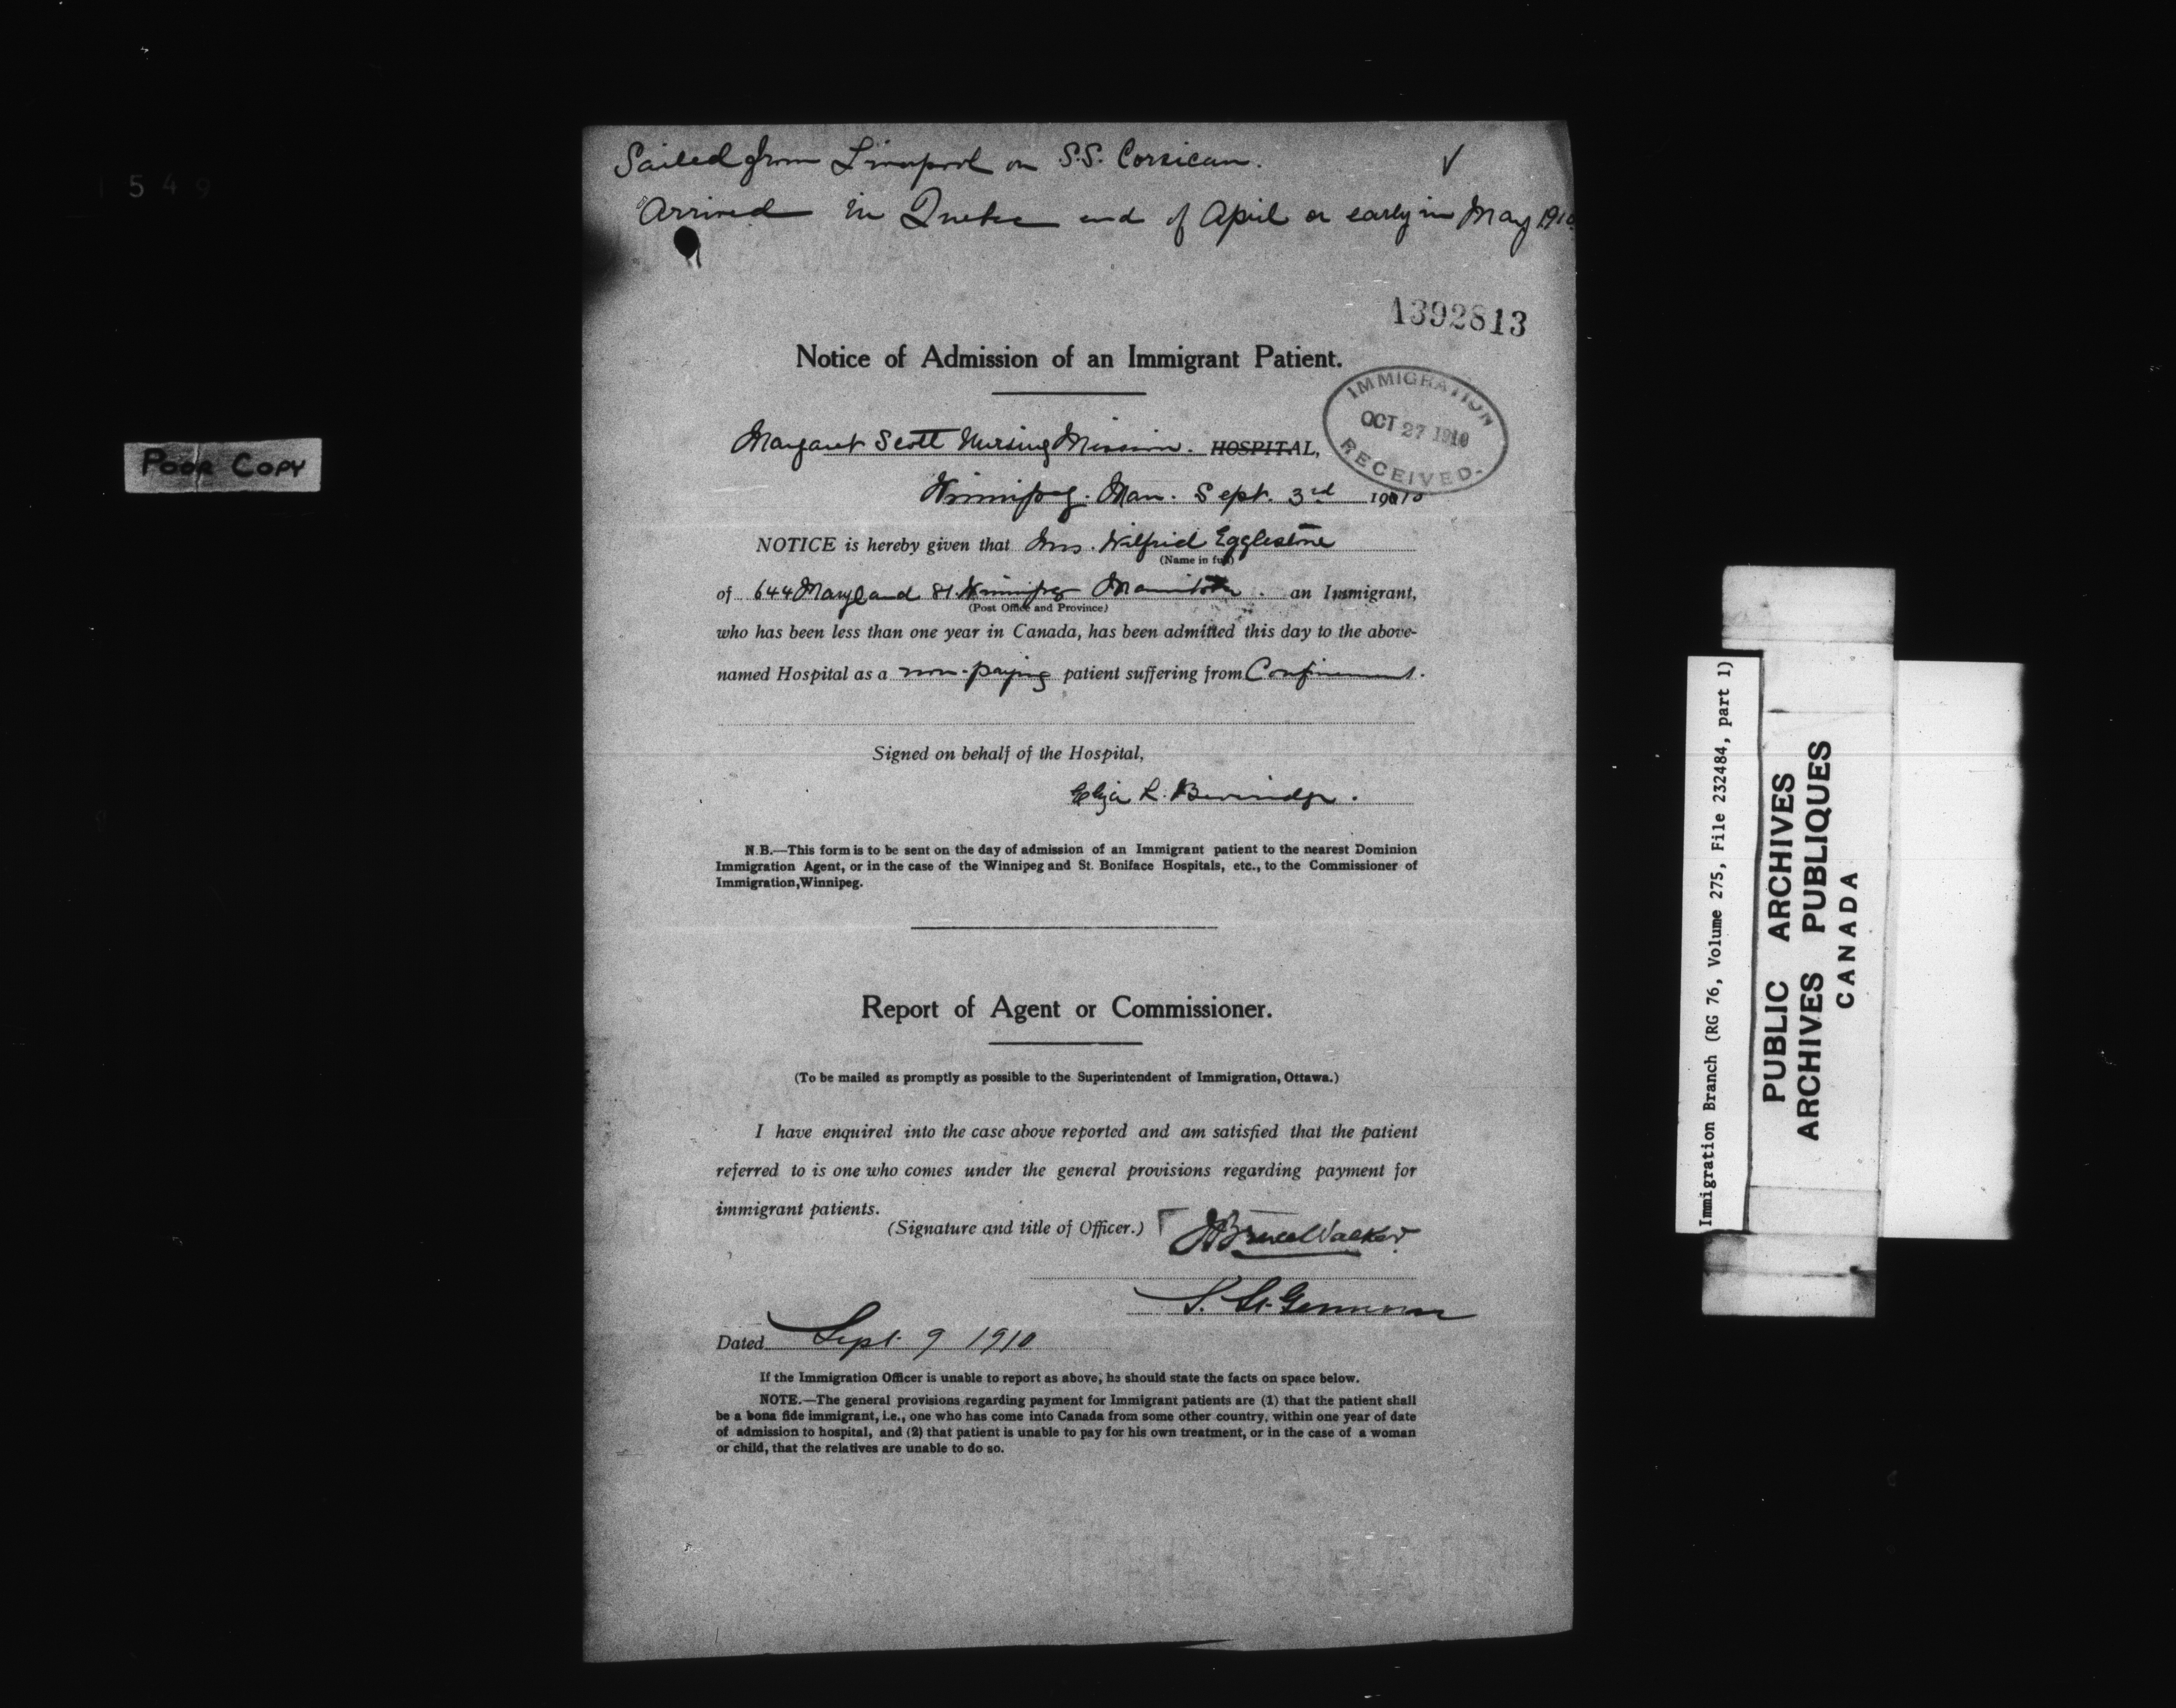 Sailed from Liverpool on S.S. Corsican.
Arrived in Quebec end of April or early in May 1910
1392813
Notice of Admission of an Immigrant Patient.
IMMIGRATION
OCT 27 1910
RECEIVED.
Margaret Scott Nursing Mission. HOSPITAL,
Winnipeg. Man. Sept. 3rd 1910
NOTICE is hereby given that Mrs. Wilfrid Egglestone
(Name in full)
of 644 Maryland St. Winnipeg Manitoba. an Immigrant,
(Post Office and Province)
who has been less than one year in Canada, has been admitted this day to the above-
named Hospital as a non-paying patient suffering from Confinement.
Signed on behalf of the Hospital,
Eliza L. Beveridge.
N.B.—This form is to be sent on the day of admission of an Immigrant patient to the nearest Dominion
Immigration Agent, or in the case of the Winnipeg and St. Boniface Hospitals, etc., to the Commissioner of
Immigration, Winnipeg.
Report of Agent or Commissioner.
(To be mailed as promptly as possible to the Superintendent of Immigration, Ottawa.)
I have enquired into the case above reported and am satisfied that the patient
referred to is one who comes under the general provisions regarding payment for
immigrant patients.
(Signature and title of Officer.) J Bruce Walker
Dated Sept. 9 1910
If the Immigration Officer is unable to report as above, he should state the facts on space below.
NOTE.—The general provisions regarding payment for Immigrant patients are (1) that the patient shall
be a bona fide immigrant, i.e., one who has come into Canada from some other country, within one year of date
of admission to hospital, and (2) that patient is unable to pay for his own treatment, or in the case of a woman
or child, that the relatives are unable to do so.
POOR COPY
1549
Immigration Branch (RG 76, Volume 275, File 232484, part 1)
PUBLIC ARCHIVES
ARCHIVES PUBLIQUES
CANADA